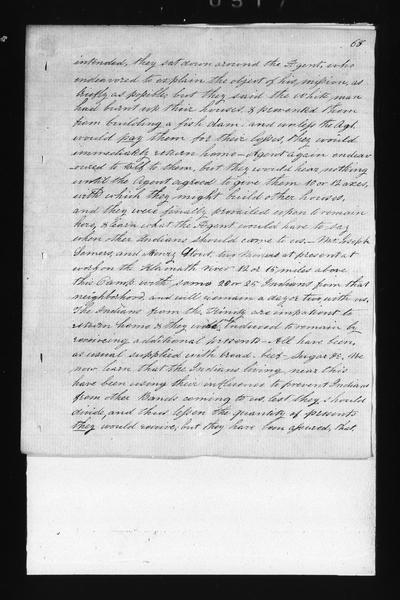 68
intended, they sat down around the Agent, who
endeavored to explain the object of his mission, as
briefly as possible, but they said the white man
had burnt up their houses, & prevented them
from building a fish dam. and unless the Agt.
would pay them for their losses, they would
immediately return home - Agent again endeav-
ored to talk to them, but they would hear nothing
until the Agent agreed to give them 10 or 12 axes,
with which they might build other houses,
and they were finally prevailed upon to remain
here, & learn what the Agent would have to say
when other Indians should come to us. Mr. Joseph
Somers, and Henry Clout, two Americans at present at
work on the Klamath river 12 or 15 miles above
this Camp with some 20 or 25 Indians from that
neighborhood and will remain a day or two with us.
The Indians from the Trinity are impatient to
return home & they were induced to remain by
receiving additional presents - All have been
as usual supplied with bread - beef - Sugar &c. We
now learn that the Indians living near this
have been using their influence to prevent Indians
from other Bands coming to us, lest they should
divide, and thus lessen the quantity of presents
they would receive; but they have been assured, that